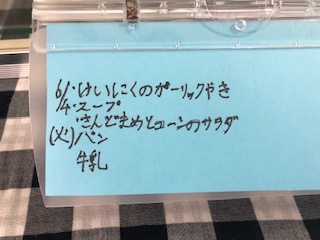 6/・けいにくのガーリックやき
14・スープ
・さんどまめとコーンのサラダ
(火)パン
牛乳